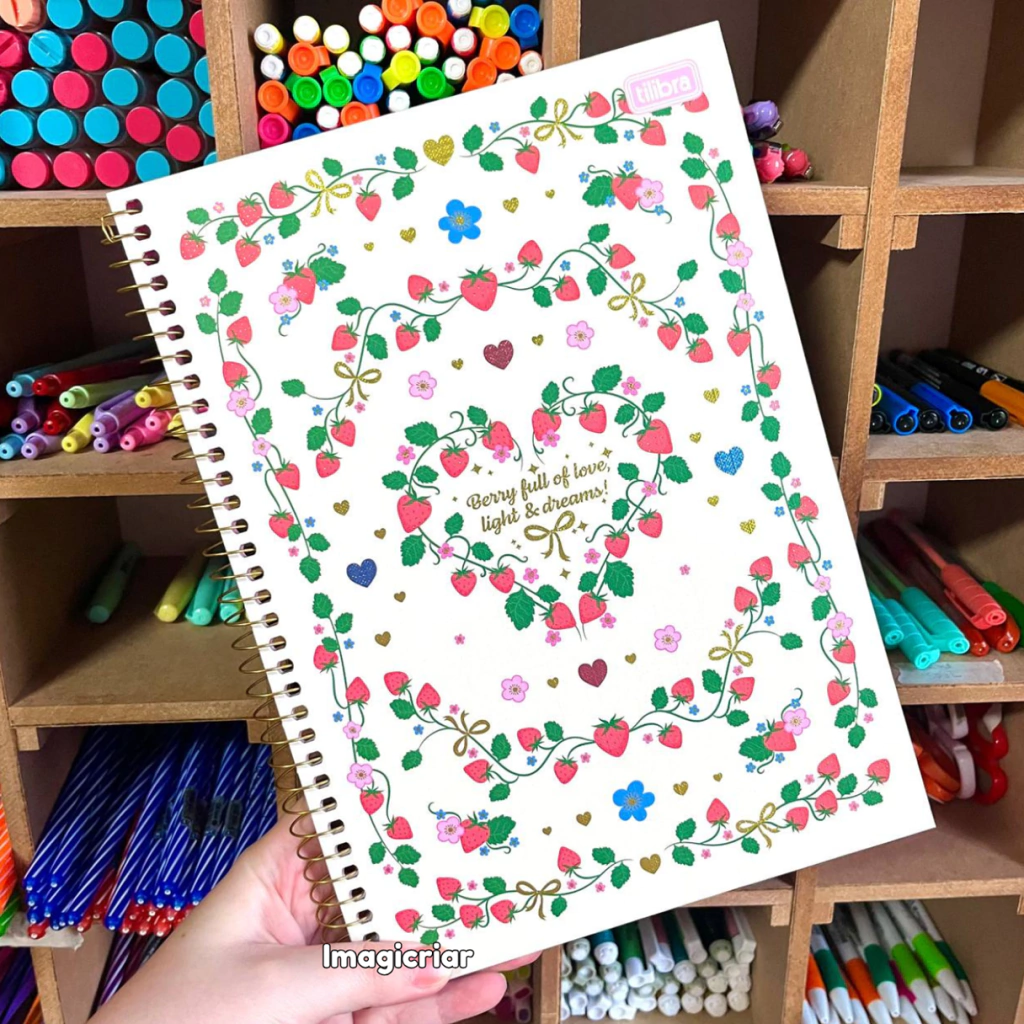 tilibra
Berry full of love,
light & dreams!
Imagicriar